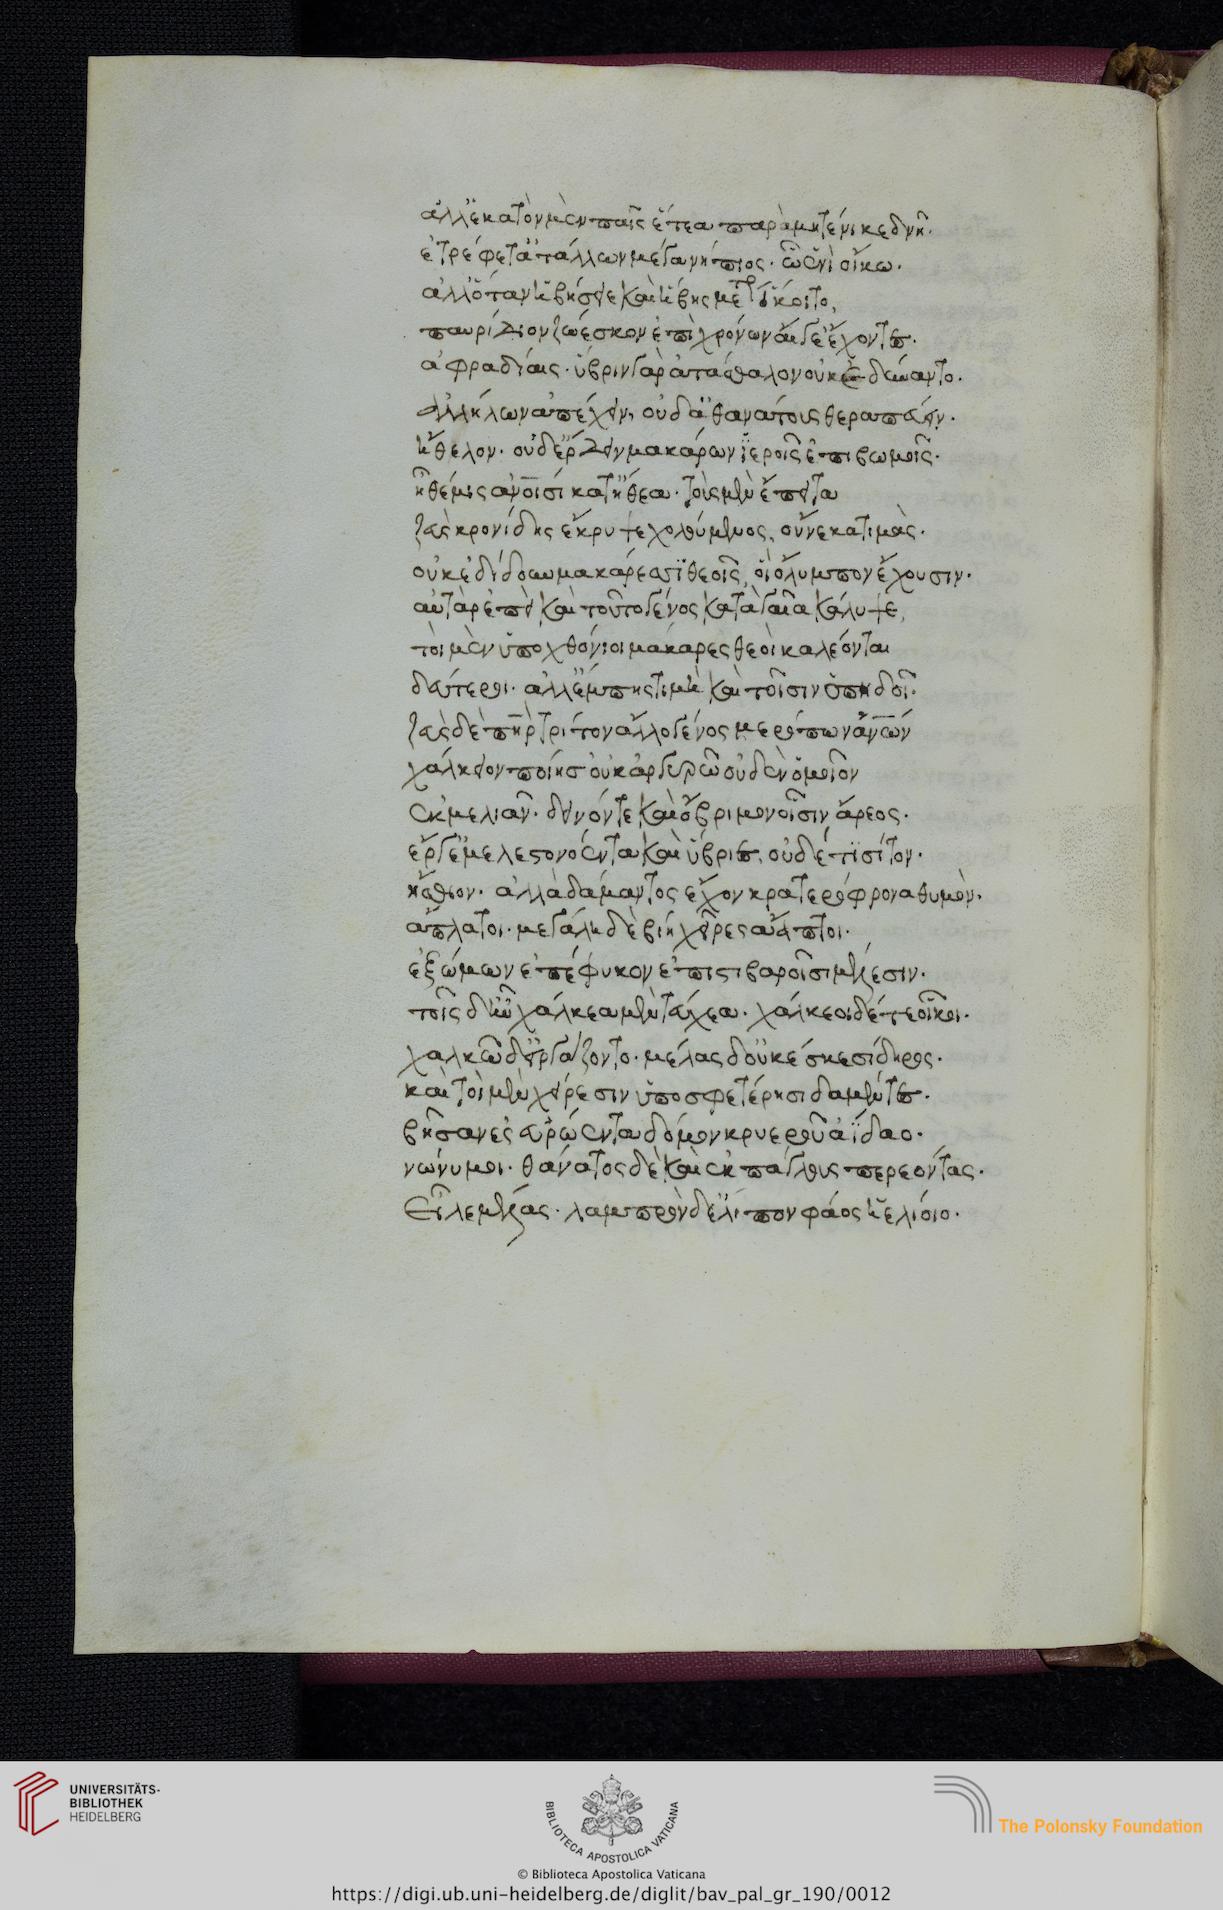 ἀλλ' ἑκατὸν μὲν παῖς ἔτεα παρὰ μητέρι κεδνῇ·
ἐτρέφετ' ἀτάλλων μέγα νήπιος· ᾧ ἐνὶ οἴκω·
ἀλλ' ὅταν ἡβήσειε καὶ ἥβης μέτρον ἵκοιτο,
παυρίδιον ζώεσκον ἐπὶ χρόνων ἄλγε' ἔχοντες·
ἀφραδίαις· ὕβριν γὰρ ἀτάσθαλον οὐκ ἐδύναντο·
ἀλλήλων ἀπέχειν, οὐδ' ἀθανάτοις θεραπεύειν·
ἤθελον· οὐδ' ἔρδειν μακάρων ἱεροῖς ἐπὶ βωμοῖς·
ἣ θέμις ἀνοισί κατ' ἤθεα· τοὺς μὲν ἔπειτα
ζεὺς κρονίδης ἔκρυψε χολούμενος, οὕνεκα τιμὰς·
οὐκ ἐδίδουν μακάρεσσι θεοῖς, οἳ ὄλυμπον ἔχουσιν·
αὐτὰρ ἐπεὶ καὶ τοῦτο γένος κατὰ γαῖα κάλυψε,
τοὶ μὲν ὑποχθόνιοι μάκαρες θεοὶ καλέονται
δεύτεροι· ἀλλ' ἔμπης τιμὴ καὶ τοῖσιν ὀπηδεῖ·
ζεὺς δὲ πὴρ τρίτον ἄλλο γένος μερόπων ἀνων
χάλκειον ποίησ' οὐκ ἀργυρῶ οὐδὲν ὁμοῖον
ἐκ μελιᾶν· δεινόν τε καὶ ὄβριμον οἷσιν ἄρεος·
ἔργ' ἔμελε στονόεντα καὶ ὕβριες, οὐδέ τι σῖτον·
ἤσθιον· ἀλλ' ἀδάμαντος ἔχον κρατερόφρονα θυμόν·
ἄπλατοι· μεγάλη δὲ βίη χεῖρες ἄαπτοι·
ἐξ ὤμων ἐπέφυκον ἐπὶ στιβαροῖσι μέλεσιν·
τοῖς δ' ἦν χάλκεα μὲν τεύχεα· χάλκεοι δέ τε οἶκοι·
χαλκῶ δ' εἰργάζοντο· μέλας δ' οὐκ ἔσκε σίδηρος·
καὶ τοὶ μὲν χείρεσιν ὕπο σφετέρησι δαμέντες·
βῆσαν ἐς εὐρώεντα δόμον κρυεροῦ ἀΐδαο·
νώνυμοι· θάνατος δὲ καὶ ἐκπάγλους περ ἐόντας·
εἷλε μέλας· λαμπρὸν δ' ἔλιπον φάος ἠελίοιο·
UNIVERSITÄTS-
BIBLIOTHEK
HEIDELBERG
BIBLIOTECA APOSTOLICA VATICANA
The Polonsky Foundation
© Biblioteca Apostolica Vaticana
https://digi.ub.uni-heidelberg.de/diglit/bav_pal_gr_190/0012